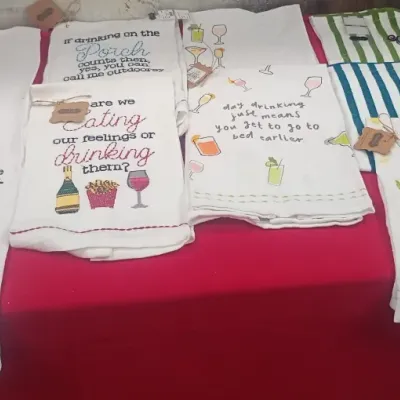 if drinking on the
Porch
counts then,
yes, you can
call me outdoorsy
are we
eating
our feelings or
drinking
them?
day drinking
just means
you get to go to
bed earlier